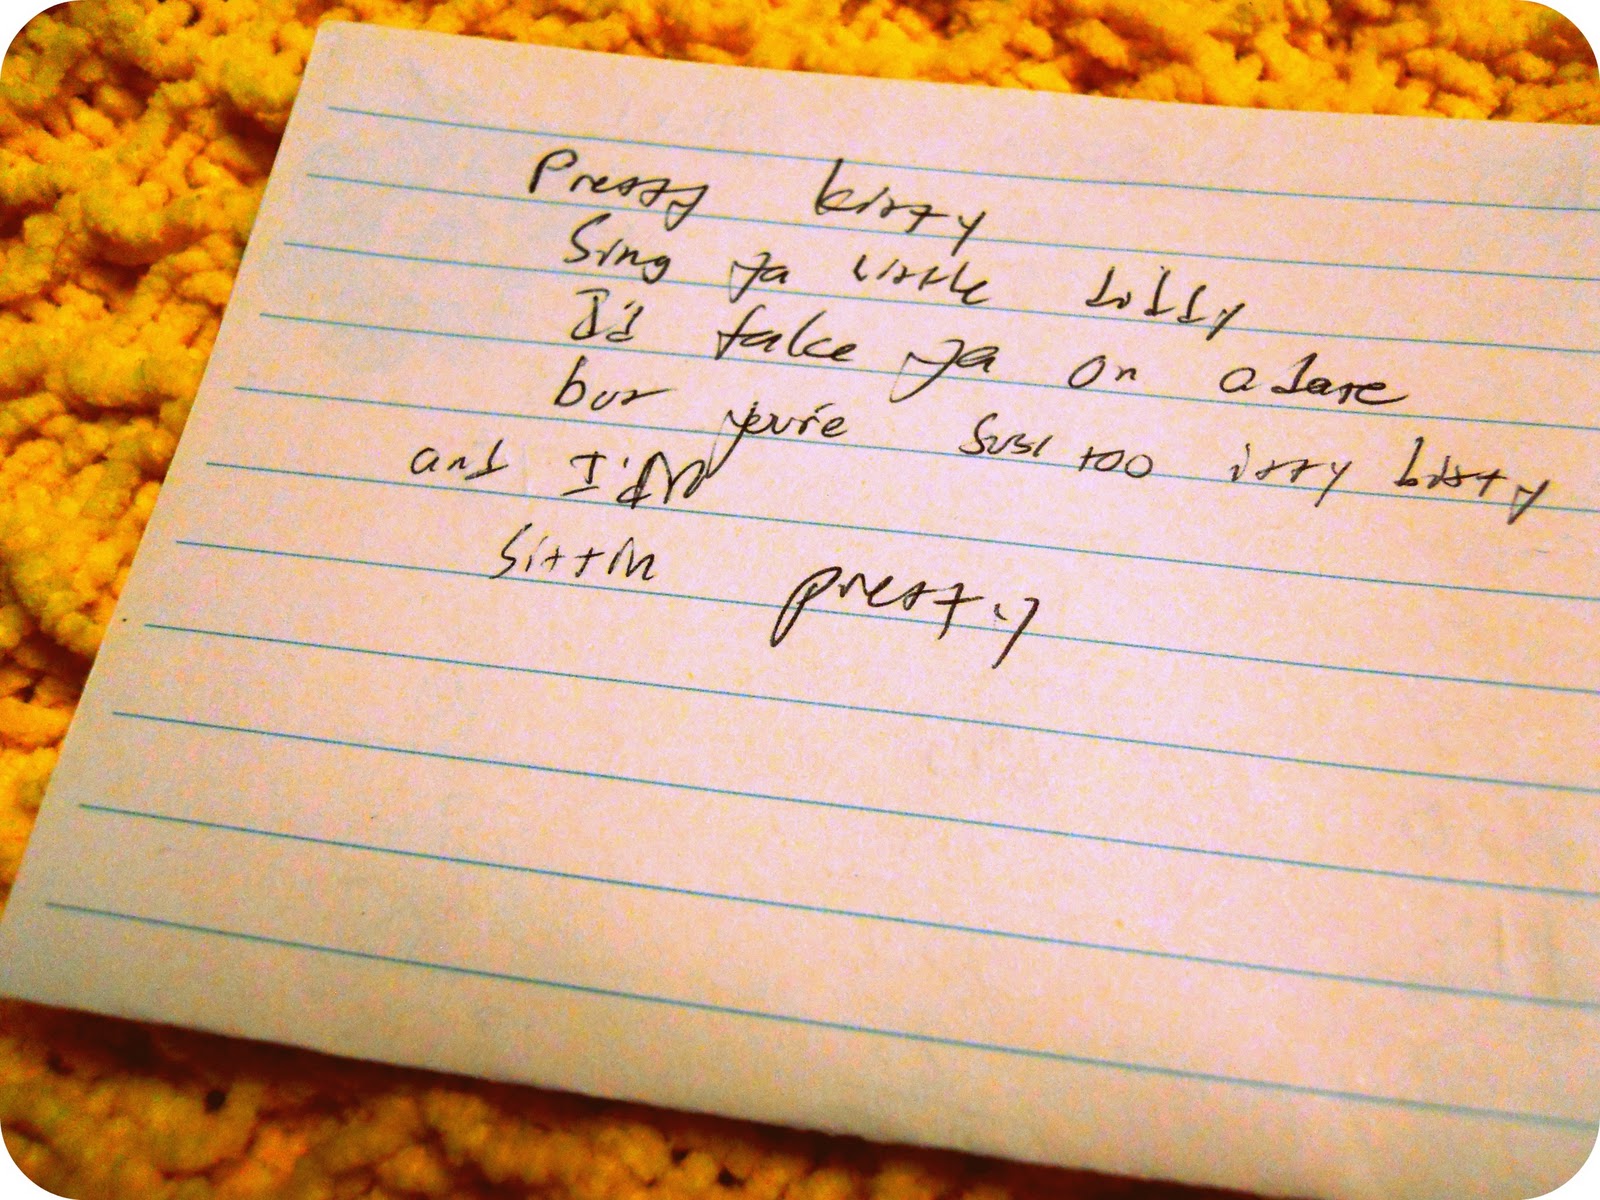 Pretty kitty
Sing ya little diddy
I'd take ya on a dare
but you're just too itty bitty
and I'm
Sittin pretty